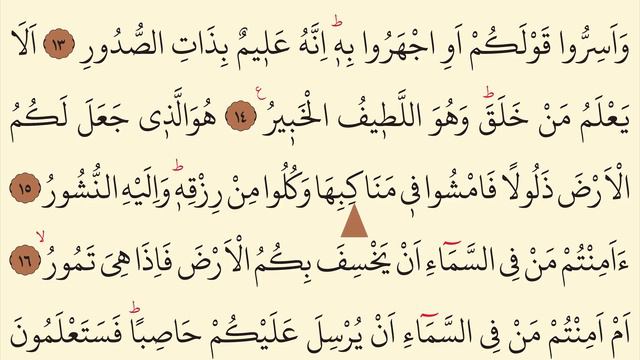 وَاَسِرُّوا قَوْلَكُمْ اَوِ اجْهَرُوا بِهٖۜ اِنَّهُ عَلٖيمٌ بِذَاتِ الصُّدُورِ ﴿١٣﴾ اَلَا
يَعْلَمُ مَنْ خَلَقَۜ وَهُوَ اللَّطٖيفُ الْخَبٖيرُࣖ ﴿١٤﴾ هُوَالَّذٖى جَعَلَ لَكُمُ
الْاَرْضَ ذَلُولًا فَامْشُوا فٖى مَنَاكِبِهَا وَكُلُوا مِنْ رِزْقِهٖۜ وَاِلَيْهِ النُّشُورُ ﴿١٥﴾
ءَاَمِنْتُمْ مَنْ فِى السَّمَٓاءِ اَنْ يَخْسِفَ بِكُمُ الْاَرْضَ فَاِذَا هِىَ تَمُورُۙ ﴿١٦﴾
اَمْ اَمِنْتُمْ مَنْ فِى السَّمَٓاءِ اَنْ يُرْسِلَ عَلَيْكُمْ حَاصِبًاۜ فَسَتَعْلَمُونَ